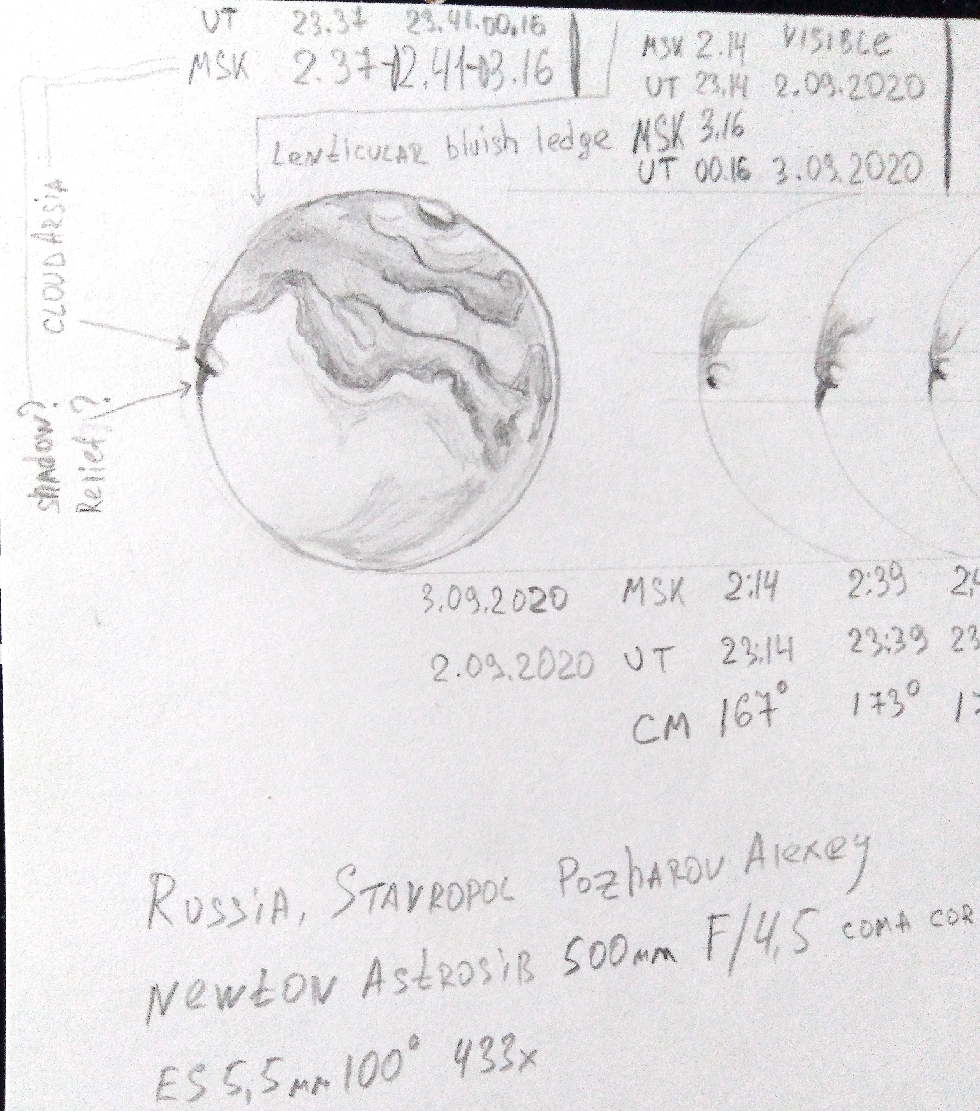 UT 23.37 23.41-00.16
MSK 2.37-2.41-03.16
MSK 2.14 VISIBLE
UT 23.14 2.09.2020
MSK 3.16
UT 00.16 3.09.2020
Lenticular bluish ledge
CLOUD ARSIA
Shadow?
Relief?
3.09.2020 MSK 2:14 2:39
2.09.2020 UT 23:14 23:39 23
CM 167° 173° 17
RUSSIA, STAVROPOL Pozharov Alexey
Newton Astrosib 500mm F/4,5 coma cor
ES 5,5mm 100° 433x